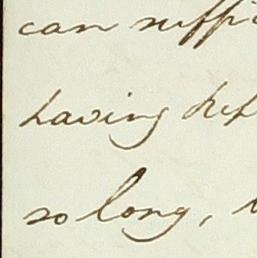 can suffi
having def
so long,